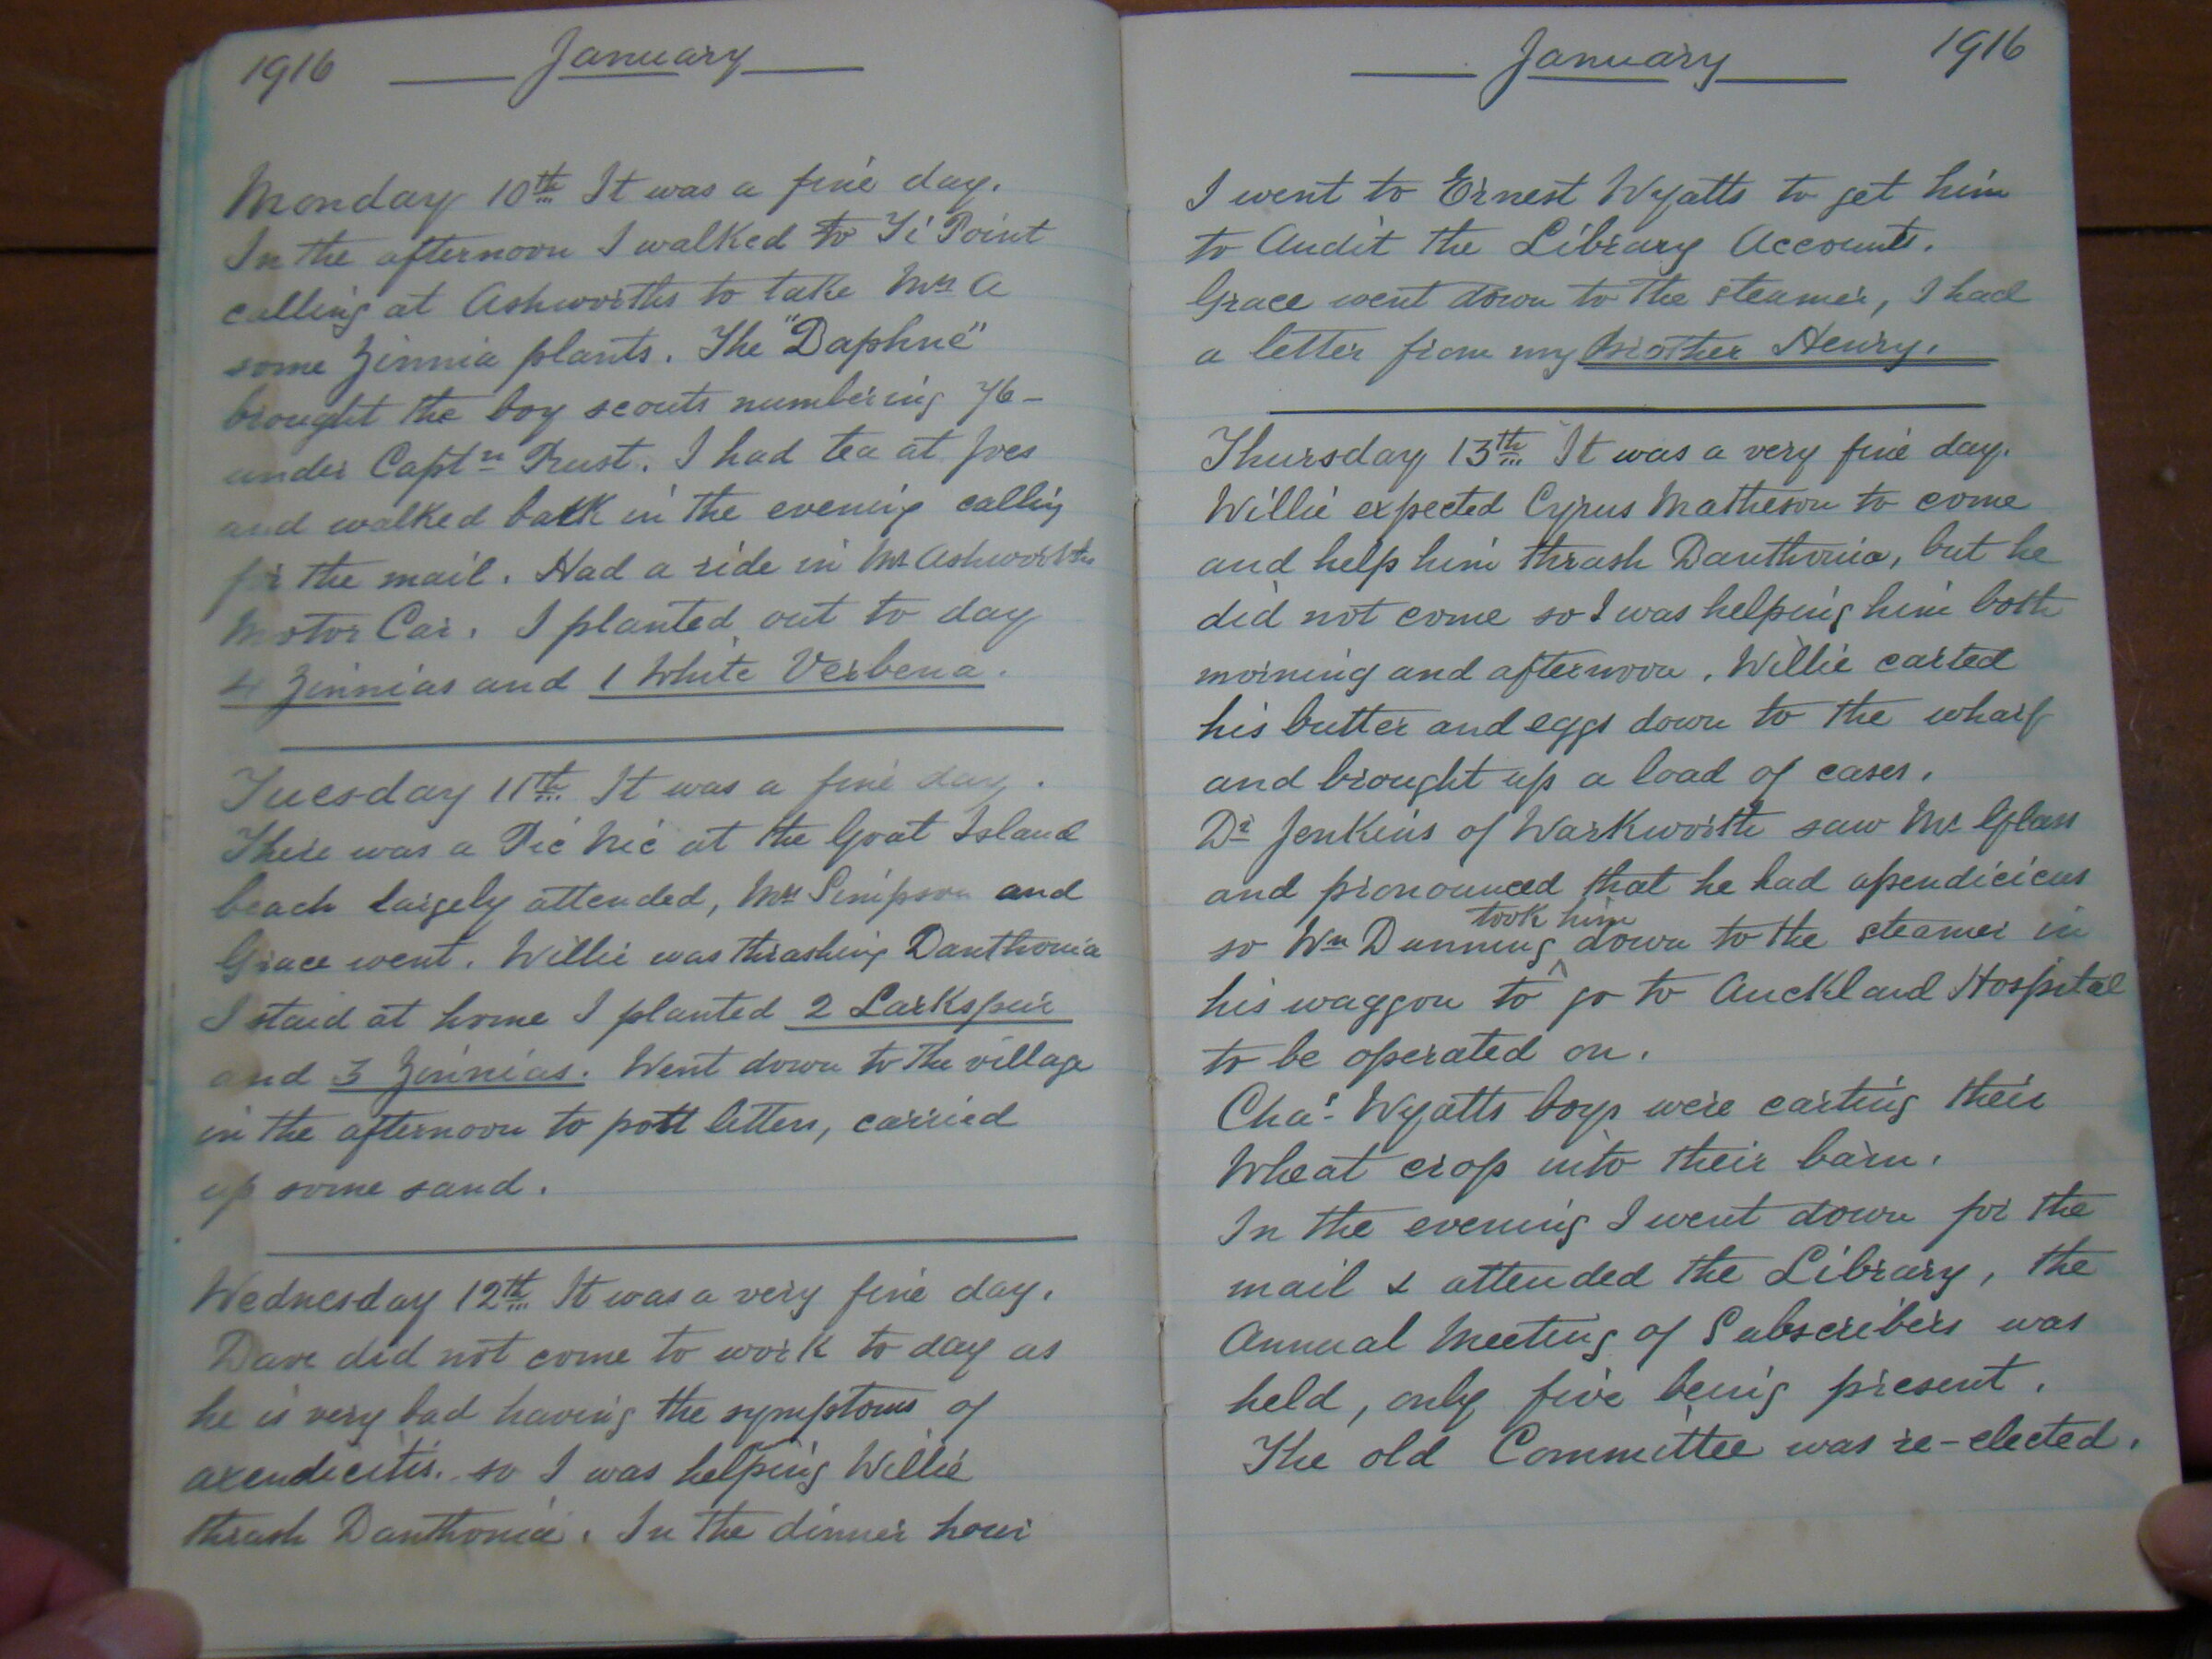 1916 January
Monday 10th It was a fine day.
In the afternoon I walked to Ti Point
calling at Ashworths to take Mrs A
some Zinnia plants. The "Daphne"
brought the boy scouts numbering 76 -
under Captn Prust. I had tea at Joes
and walked back in the evening calling
for the mail. Had a ride in Mr Ashworths
Motor Car. I planted out to day
4 Zinnias and 1 White Verbena.
Tuesday 11th It was a fine day.
There was a Pic Nic at the Goat Island
beach largely attended, Mrs Simpson and
Grace went. Willie was thrashing Danthonia
I staid at home I planted 2 Larkspur
and 3 Zinnias. Went down to the village
in the afternoon to post letters, carried
up some sand.
Wednesday 12th It was a very fine day.
Dave did not come to work to day as
he is very bad having the symptoms of
axendicitis. so I was helping Willie
thrash Danthonia. In the dinner hour
January 1916
I went to Ernest Wyatts to get him
to Audit the Library Accounts.
Grace went down to the steamer, I had
a letter from my brother Henry.
Thursday 13th It was a very fine day.
Willie expected Cyrus Matheson to come
and help him thrash Danthonia, but he
did not come so I was helping him both
morning and afternoon. Willie carted
his butter and eggs down to the wharf
and brought up a load of cases.
Dr Jenkins of Warkworth saw Mr Glass
and pronounced that he had apendicicus
took him
so Wm Dunning ^ down to the steamer in
his waggon to go to Auckland Hospital
to be operated on.
Chas Wyatts boys were carting their
Wheat crop into their barn.
In the evening I went down for the
mail & attended the Library, the
Annual Meeting of Subscribers was
held, only five being present.
The old Committee was re-elected.